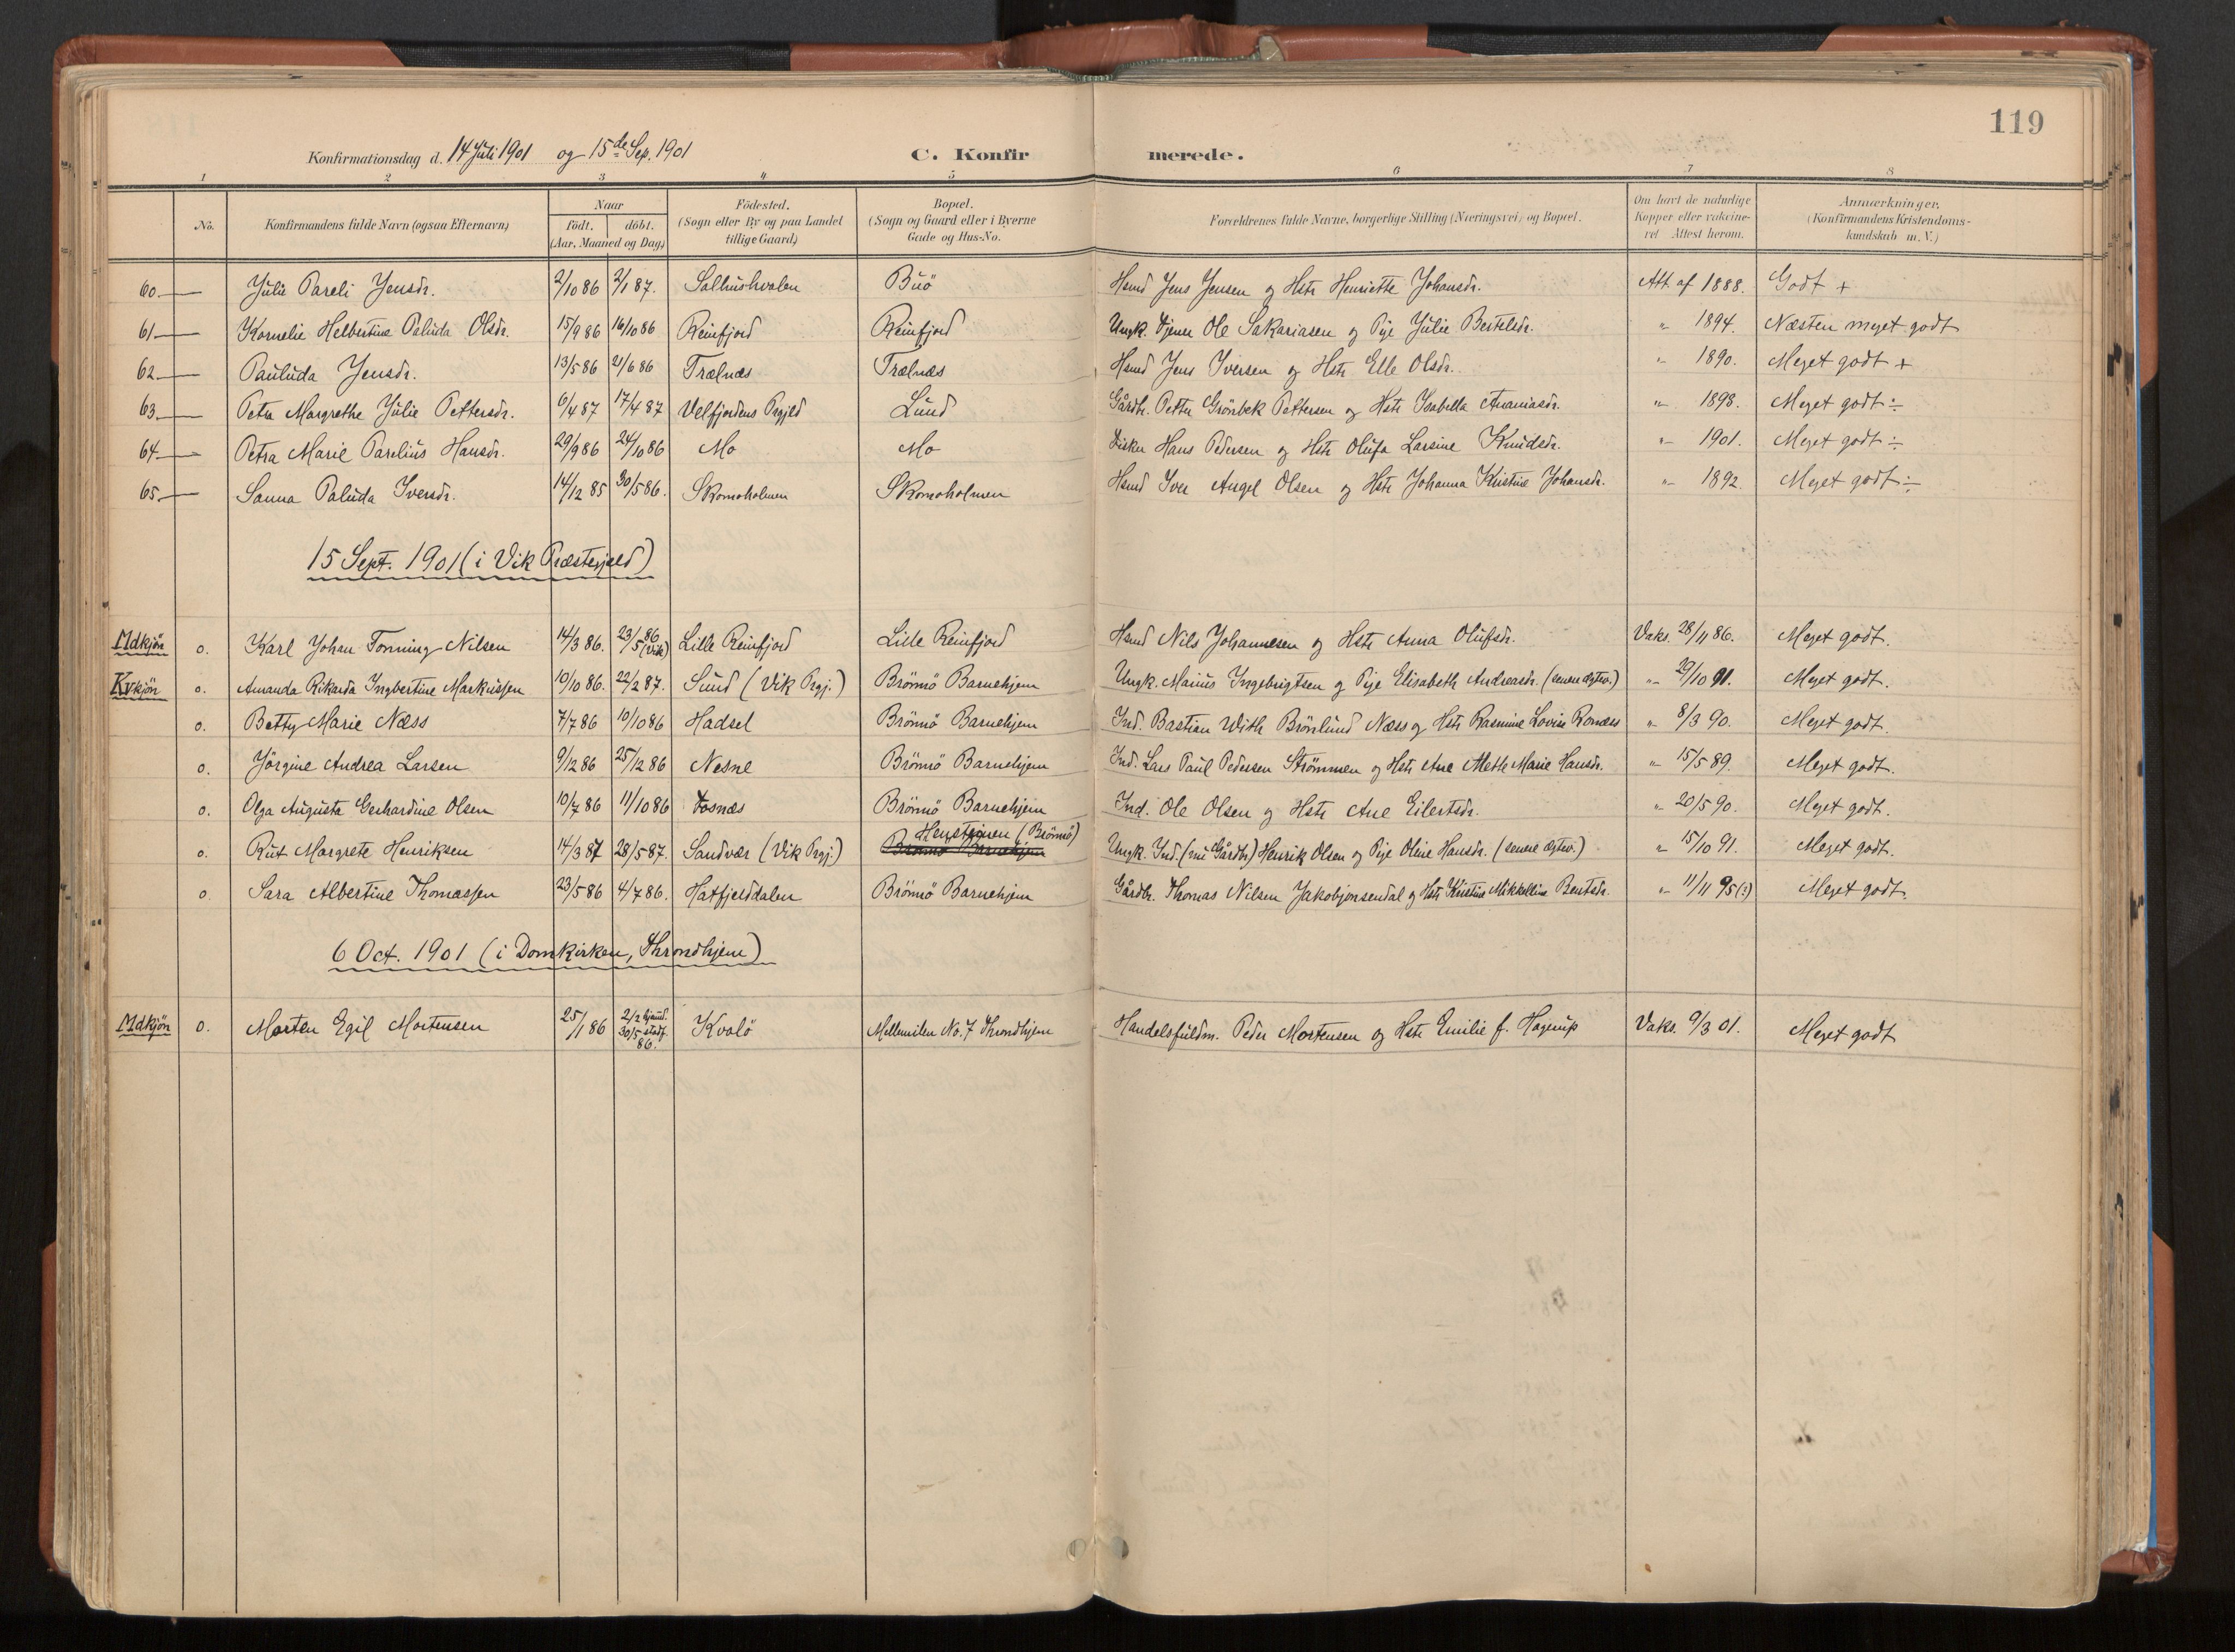 119
Konfirmationsdag d. 14 Juli 1901 og 15de Sep. 1901 C. Konfirmerede.
1 2 3 4 5 6 7 8
No. Konfirmandens fulde Navn (ogsaa Efternavn) Naar født. døbt. (Aar, Maaned og Dag) Fødested. (Sogn eller By og paa Landet tillige Gaard) Bopæl. (Sogn og Gaard eller i Byerne Gade og Hus-No. Forældrenes fulde Navne, borgerlige Stilling (Næringsvei) og Bopæl. Om havt de naturlige Kopper eller vaccineret Attest herom. Anmærkninger, (Konfirmandens Kristendomskundskab m. V.)
60. Julie Pareli Jensdr. 2/10 86 2/1 87. Salhushvalen Buö Hsmd Jens Jensen og Hstr Henriette Johansdr. Att. af 1888. Godt +
61 Kornelie Helbertine Paluda Olsdr. 15/9 86 16/10 86 Reinfjord Reinfjord Ungk. Tjener Ole Sakariasen og Pije Julie Bertelsdr. " 1894. Næsten meget godt
62 Pauluda Jensdr. 13/5 86 21/6 86 Trælnæs Trælnæs Hsmd Jens Iversen og Hstr Elle Olsdr. " 1890. Meget godt +
63. Petra Margrethe Julie Pettersdr. 6/4 87 17/4 87 Velfjordens Prgjld Lund Gårdbr. Petter Grönbek Pettersen og Hstr Isabella Ananiasdr. " 1898. Meget godt ÷
64 Petra Marie Parelius Hansdr. 29/9 86 24/10 86 Mo Mo Fisker Hans Pedersen og Hstr Olufa Larsine Knudsdr. " 1901. Meget godt ÷
65. Sanna Paluda Iversdr. 14/12 85 30/5 86. Skomoholmen Skomoholmen Hsmd Iver Angel Olsen og Hstr Johanna Kristine Johansdr. " 1892. Meget godt ÷
15 Sept. 1901 (i Vik Præstegjeld)
Mdkjön o. Karl Johan Tonning Nilsen 14/3 86. 23/5 86 (Vik) Lille Reinfjord Lille Reinfjord Hsmd Nils Johannesen og Hstr Anna Olufsdr. Vaks. 28/11 86. Meget godt.
Kvkjön o. Amanda Rikarda Ingbertine Markussen 10/10 86. 22/2 87. Sund (Vik Prgj.) Brönnö Barnehjem Ungk. Marius Ingebrigtsen og Pije Elisabeth Andreasdr. (senere egtev.) " 29/10 91. Meget godt.
o. Betty Marie Næss 7/7 86 10/10 86 Hadsel Brönnö Barnehjem Ind. Bastian With Brönlund Næss og Hstr Rasmine Lovise Ronæss " 8/3 90. Meget godt.
o. Jörgine Andrea Larsen 9/12 86 25/12 86 Nesne Brönnö Barnehjem Ind. Lars Paul Pedersen Strömmen og Hstr Ane Mette Marie Hansdr. " 15/5 89. Meget godt.
o. Olga Augusta Gerhardine Olsen 10/7 86 11/10 86 Fosnæs Brönnö Barnehjem Ind. Ole Olsen og Hstr Ane Eilertsdr. " 20/5 90. Meget godt.
o. Rut Margrete Henriksen 14/3 87 28/5 87. Sandvær (Vik Prgj.) Hensteinen (Brönnö) Brönnö Barnehjem Ungk. Ind. (nu Gårdbr) Henrik Olsen og Pije Oline Hansdr. (senere egtev.) " 15/10 91. Meget godt.
o. Sara Albertine Thomassen 23/5 86 4/7 86. Hatfjelddalen Brönnö Barnehjem Gårdbr. Thomas Nilsen Jakobjonsendal og Hstr Kristine Mikkeline Bentsdr. " 11/11 95 (?) Meget godt.
6 Oct. 1901 (i Domkirken, Throndhjem)
Mdkjön o. Morten Egil Mortensen 25/1 86 2/2 hjemd. 30/5 stadf. 86. Kvalö Mellemilen No. 7 Throndhjem Handelsfuldm. Peder Mortensen og Hstr Emilie f. Hagerup Vaks. 9/3 01. Meget godt